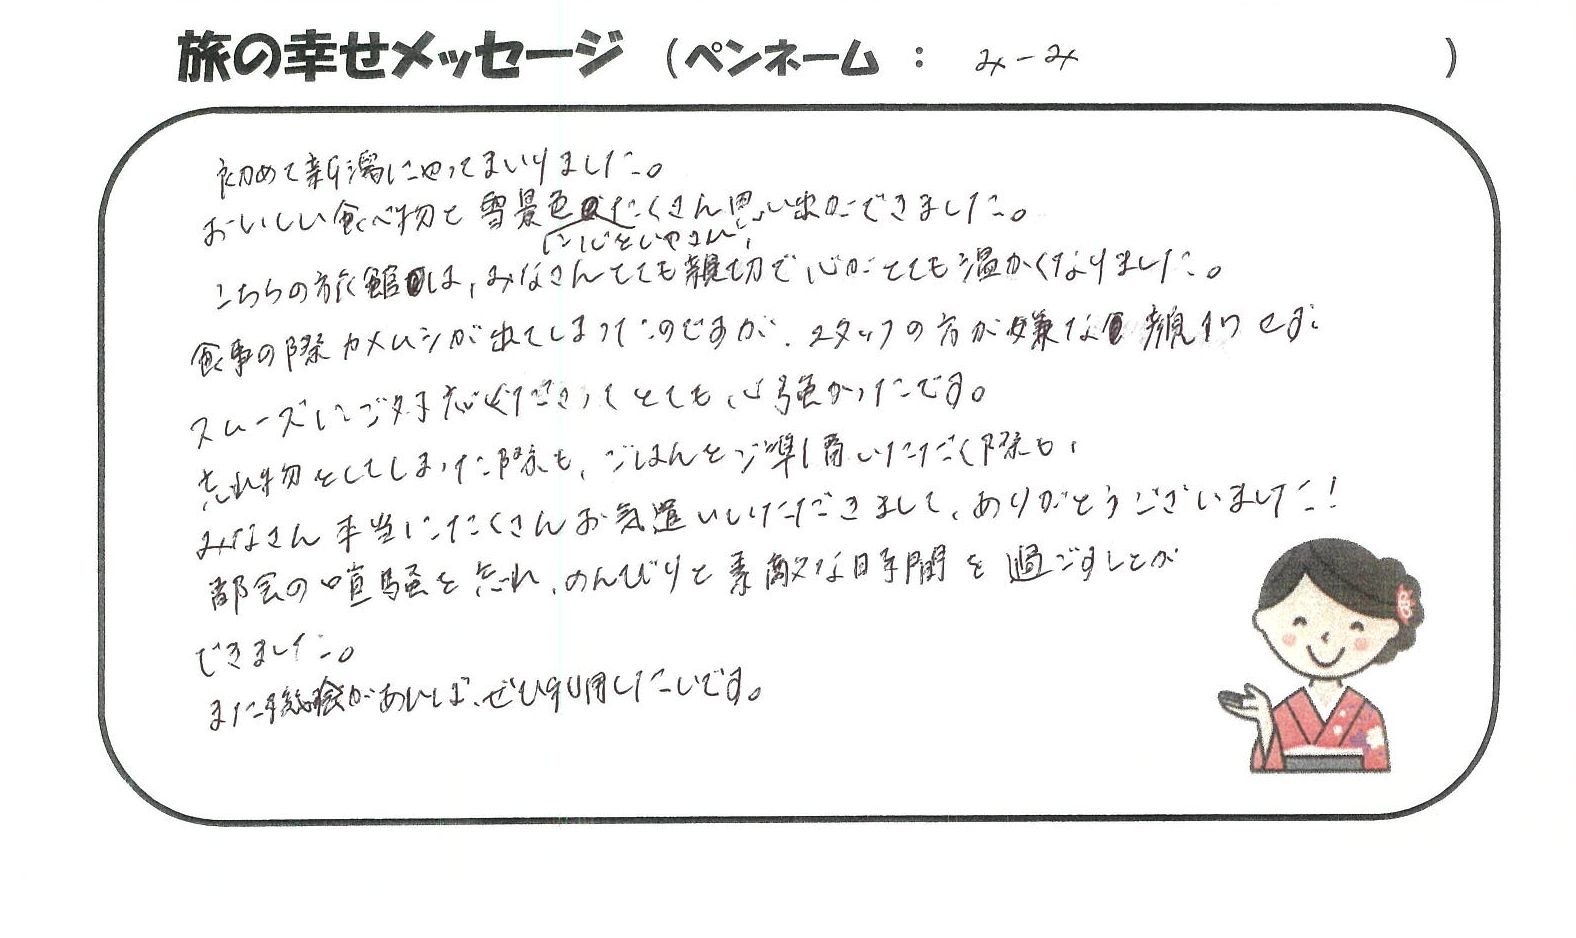 旅の幸せメッセージ (ペンネーム : みーみ )
初めて新潟にやってまいりました。
おいしい食べ物と雪景色に心をいやされ、たくさん思い出ができました。
こちらの旅館は、みなさんとても親切で心がとても温かくなりました。
食事の際カメムシが出てしまったのですが、スタッフの方が嫌な顔1つせず、
スムーズにご対応くださってとても心強かったです。
忘れ物をしてしまった際も、ごはんをご準備いただく際も、
みなさん本当にたくさんお気遣いいただきまして、ありがとうございました!
都会の喧騒を忘れ、のんびりと素敵な時間を過ごすことが
できました。
また機会があれば、ぜひ利用したいです。